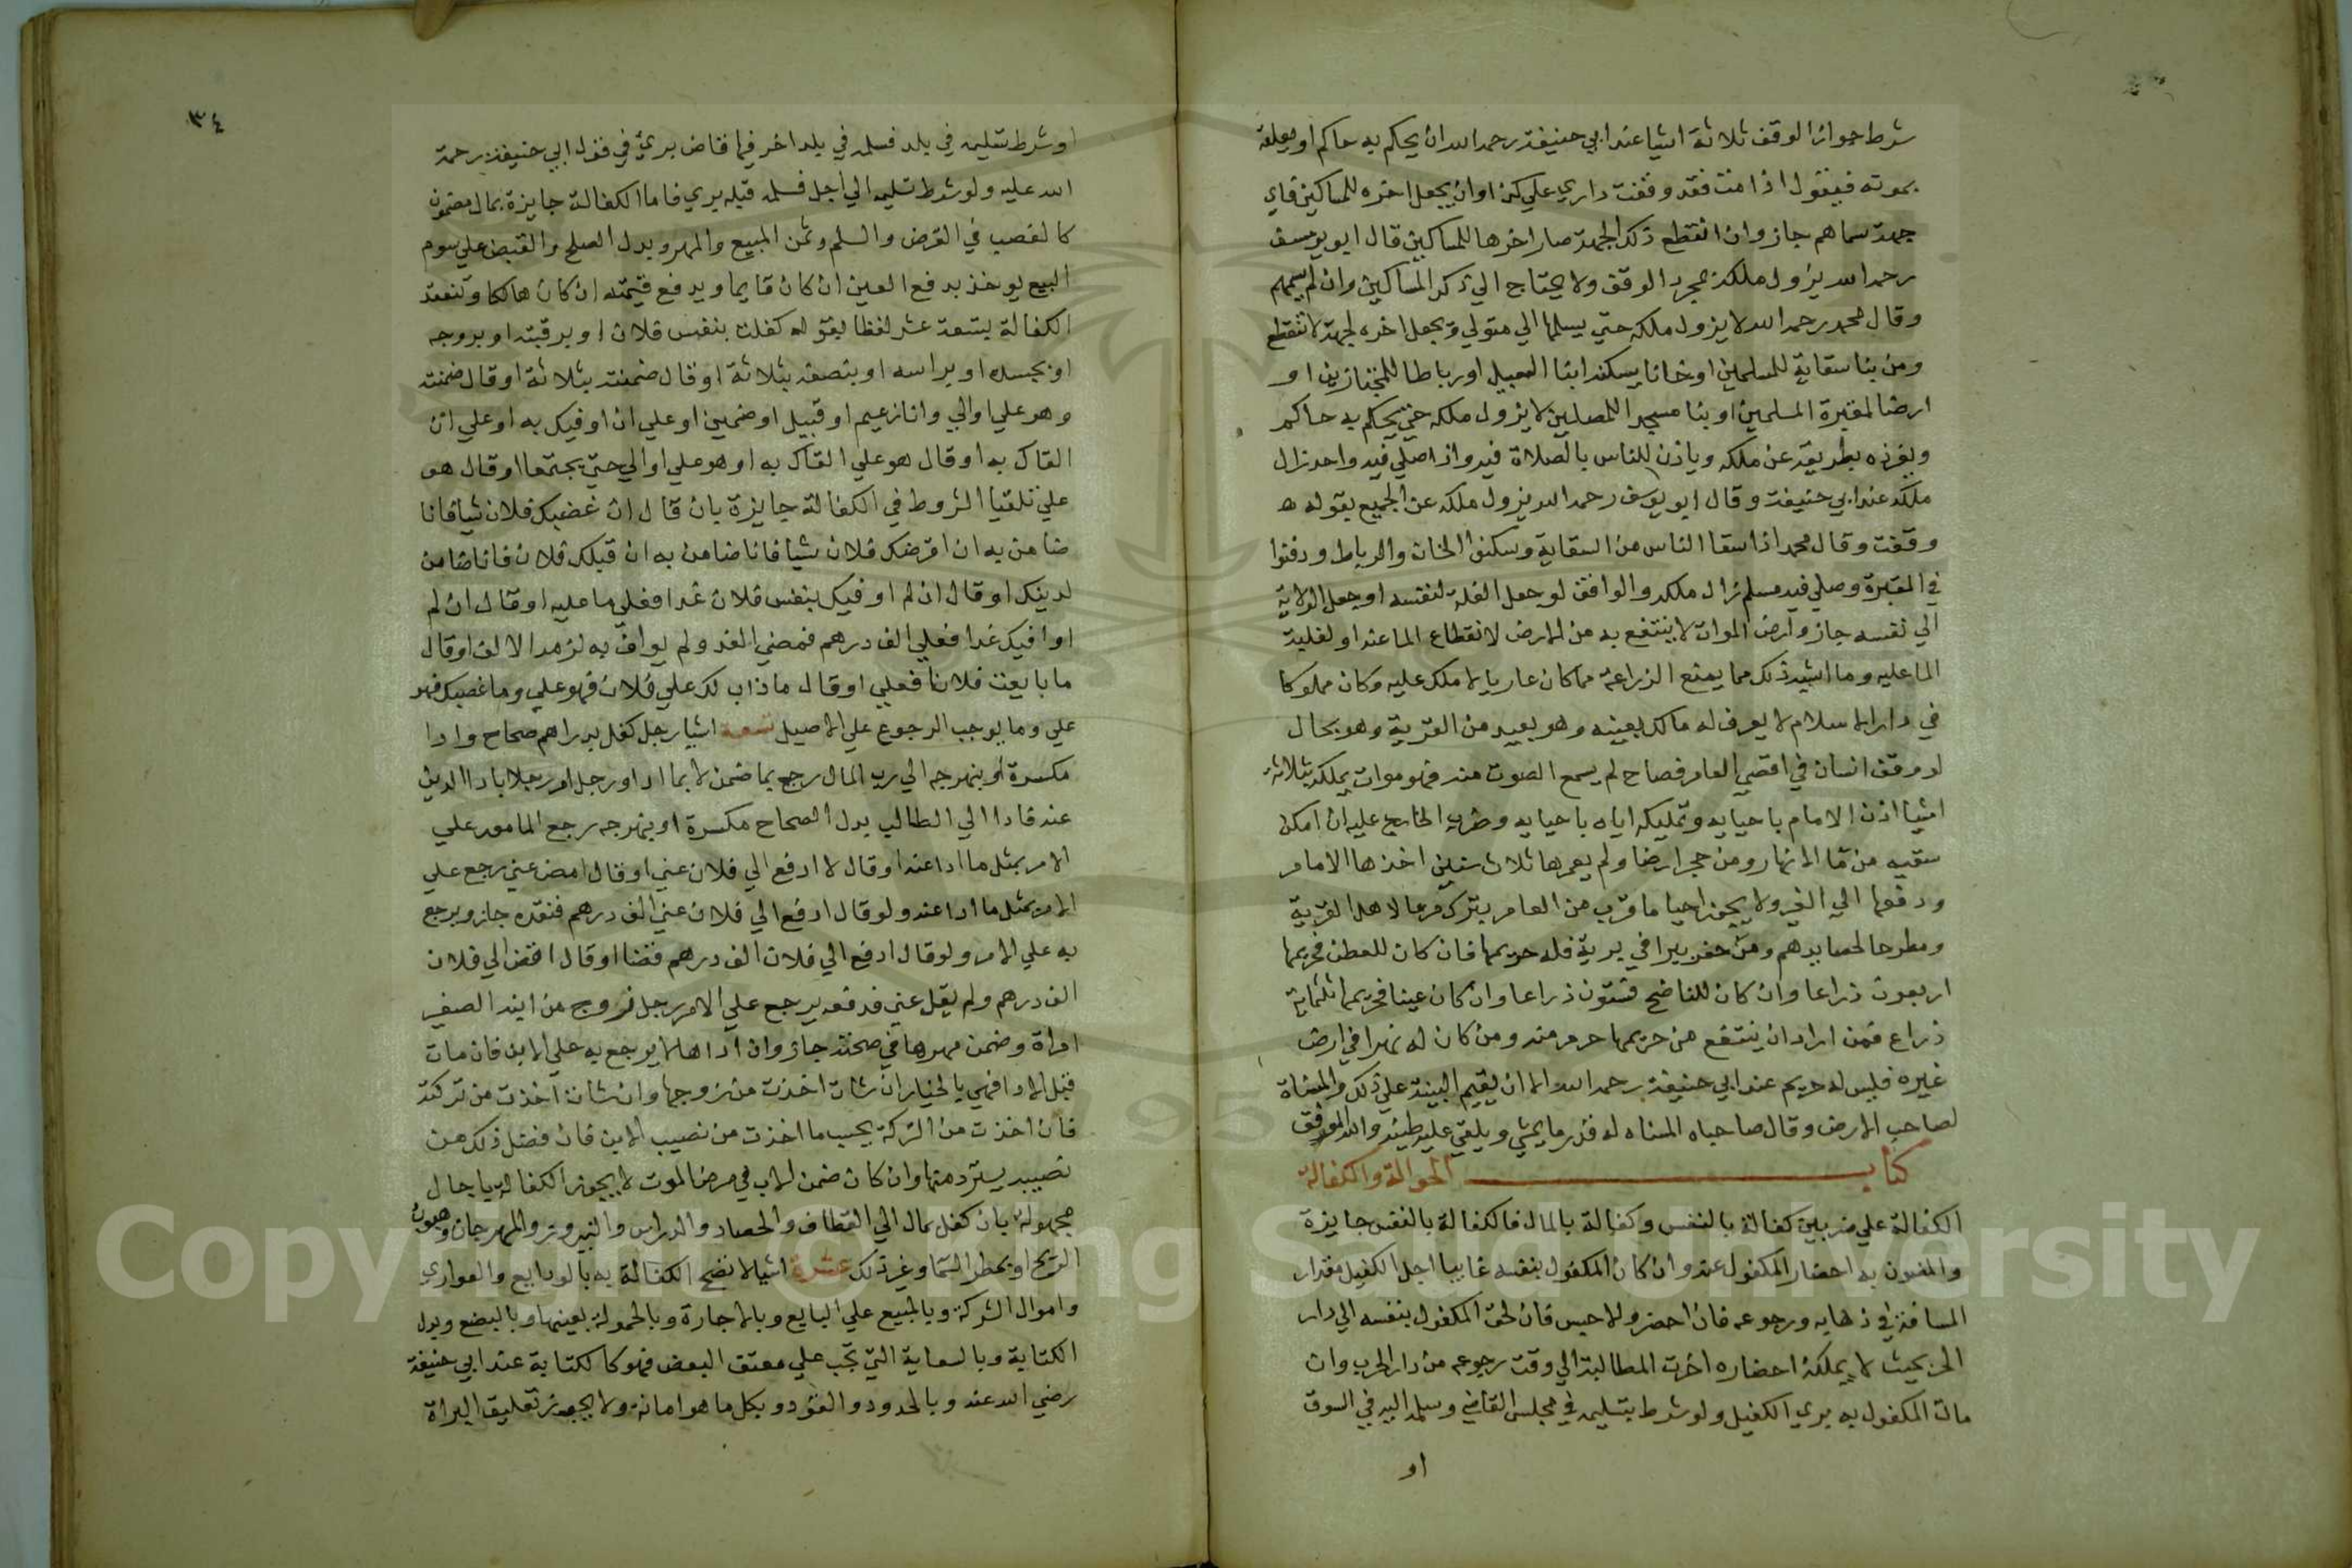 شرط جواز الوقف ثلاثة اشيا عند ابي حنيفة رحمه الله ان يحكم به حاكم او يعلقه
بموته فيقول اذا مت فقد وقفت داري علي كذا وان يجعل اخره للمساكين فاي
جهة سماهم جاز وان انقطع ذكر الجهة صار اخرها للمساكين قال ابو يوسف
رحمه الله يزول ملكه بمجرد الوقف ولا يحتاج الي ذكر المساكين وان لم يسمهم
وقال محمد رحمه الله لا يزول ملكه حتي يسلمها الي متولي ويجعل اخره لجهة لا تنقطع
ومن بنا سقاية للمسلمين او خانا يسكنه ابنا السبيل او رباطا للمجتازين او
ارضا لمقبرة المسلمين او بنا مسجدا للمصلين لا يزول ملكه حتي يحكم به حاكم
ويفرزه بطريقه عن ملكه وياذن للناس بالصلاة فيه واذا صلي فيه واحد زال
ملكه عند ابي حنيفة وقال ابو يوسف رحمه الله يزول ملكه عن الجميع بقوله
وقفت وقال محمد اذا سقا الناس من السقاية وسكنوا الخان والرباط ودفنوا
في المقبرة وصلي فيه مسلم زال ملكه والواقف لو جعل الغلة لنفسه او جعل الولاية
الي نفسه جاز وارض الموات لا ينتفع به من الارض لانقطاع الما عنه او لغلبة
الما عليه وما اشبه ذلك مما يمنع الزراعة مما كان عاريا لا ملك عليه وكان مملوكا
في دار الاسلام لا يعرف له مالك بعينه وهو بعيد من القرية وهو بحال
لو وقف انسان في اقصي العامر فصاح لم يسمع الصوت منه فهو موات يملكه بثلاثة
اشيا اذن الامام باحيايه وتمليكه اياه باحيايه وضرب الخراج عليه ان امكن
سقيه من ما الانهار ومن حجر ارضا ولم يعمرها ثلاث سنين اخذها الامام
ودفعها الي الغير ولا يجوز احيا ما قرب من العامر يترك مرعا لاهل القرية
ومطرحا لحصايدهم ومن حفر بيرا في برية فله حريمها فان كان للعطن فحريمها
اربعون ذراعا وان كان للناضح فستون ذراعا وان كان عينا فحريمها ثلثماية
ذراع فمن اراد ان ينتفع من حريمها حرم منه ومن كان له نهرا في ارض
غيره فليس له حريم عند ابي حنيفة رحمه الله الا ان يقيم البينة علي ذلك والمسناة
لصاحب الارض وقال صاحباه المسناه له قدر ما يمشي ويلقي عليه طينه والله الموفق
كتاب الحوالة والكفالة
الكفالة علي ضربين كفالة بالنفس وكفالة بالمال فالكفالة بالنفس جايزة
والمضمون به احضار المكفول عنه وان كان المكفول بنفسه غايبا اجل الكفيل مقدار
المسافة في ذهابه ورجوعه فان احضره والا حبس فان لحق المكفول بنفسه الي دار
الحرب بحيث لا يملكه احضاره اخرت المطالبة الي وقت رجوعه من دار الحرب وان
مات المكفول به بري الكفيل ولو شرط بتسليمه في مجلس القاضي وسلمه اليه في السوق
او
٣٤
او شرط تسليمه في بلد فسلمه في بلد اخر فيها قاض بري في قول ابي حنيفة رحمة
الله عليه ولو شرط تسليمه الي اجل فسلمه قبله بري فاما الكفالة جايزة بمال مضمون
كالغصب في القرض والسلم وثمن المبيع والمهر وبدل الصلح والقبض علي سوم
البيع يوخذ بدفع العين ان كان قايما ويدفع قيمته ان كان هالكا وتنعقد
الكفالة بتسعة عشر لفظا بقوله كفلت بنفس فلان او برقبته او بروحه
او بجسده او براسه او بنصفه بثلاثة او قال ضمنته بثلاثة او قال ضمنت
وهو علي او الي وانا زعيم او قبيل او ضمين او علي ان اوفيك به او علي ان
القاك به او قال هو علي القاك به او هو علي او الي حتي يجتمعا او قال هو
علي تلقيا الشروط في الكفالة جايزة بان قال ان غصبك فلان شيا فانا
ضامن به ان اقرضك فلان شيا فانا ضامن به ان قبلك فلان فانا ضامن
لدينك او قال ان لم اوفيك بنفس فلان غدا فعلي ما عليه او قال ان لم
اوافيك غدا فعلي الف درهم فمضي الغد ولم يواف به لزمه الالف او قال
ما بايعت فلانا فعلي او قال ماذاب لك علي فلان فهو علي وما غصبك فهو
علي وما يوجب الرجوع علي الاصيل تسعة اشيا رجل كفل بدراهم صحاح وادا
مكسرة او بنهرجه الي رب المال رجع بما ضمن لا بما ادا ورجل امر رجلا بادا الدين
عنه فادا الي الطالب بدل الصحاح مكسرة او بنهرجه رجع المامور علي
الامر بمثل ما ادا عنه او قال لا ادفع الي فلان عني او قال امض عني رجع علي
الامر بمثل ما ادا عنه ولو قال ادفع الي فلان عني الف درهم فنقده جاز ويرجع
به علي الامر ولو قال ادفع الي فلان الف درهم قضا او قال اقض الي فلان
الف درهم ولم يقل عني فدفعه يرجع علي الامر رجل زوج من ابنه الصغير
امراة وضمن مهرها في صحته جاز وان اداها لا يرجع به علي الابن فان مات
قبل الادا فهي بالخيار ان شات اخذت من زوجها وان شات اخذت من تركته
فان اخذت من التركة يحسب ما اخذت من نصيب الابن فان فضل ذلك من
نصيبه يسترد منها وان كان ضمن الاب في مرض الموت لا يجوز الكفالة باجال
مجهولة بان كفل بمال الي القطاف والحصاد والدراس والنيروز والمهرجان وهبوب
الريح او بمطر السما وغير ذلك عشرة اشيا لا تصح الكفالة به بالودايع والعواري
واموال الشركة وبالمبيع علي البايع وبالاجارة وبالحمولة بعينها وبالبضع وبدل
الكتابة وبالسعاية التي تجب علي معتق البعض فهو كالكتابة عند ابي حنيفة
رضي الله عنه وبالحدود والقود وبكل ما هو امانة ولا يجوز تعليق البراة
Copyright © King Saud University